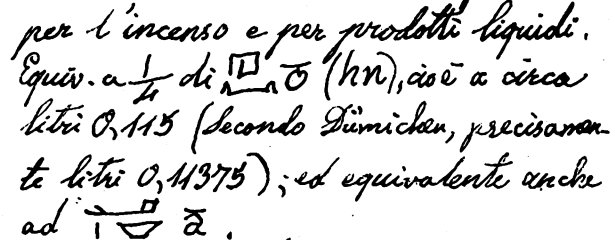 per l'incenso e per prodotti liquidi.
Equiv. a 1/4 di (hn), cioè a circa
litri 0,115 (secondo Dümichen, precisamen-
te litri 0,11375); ed equivalente anche
ad